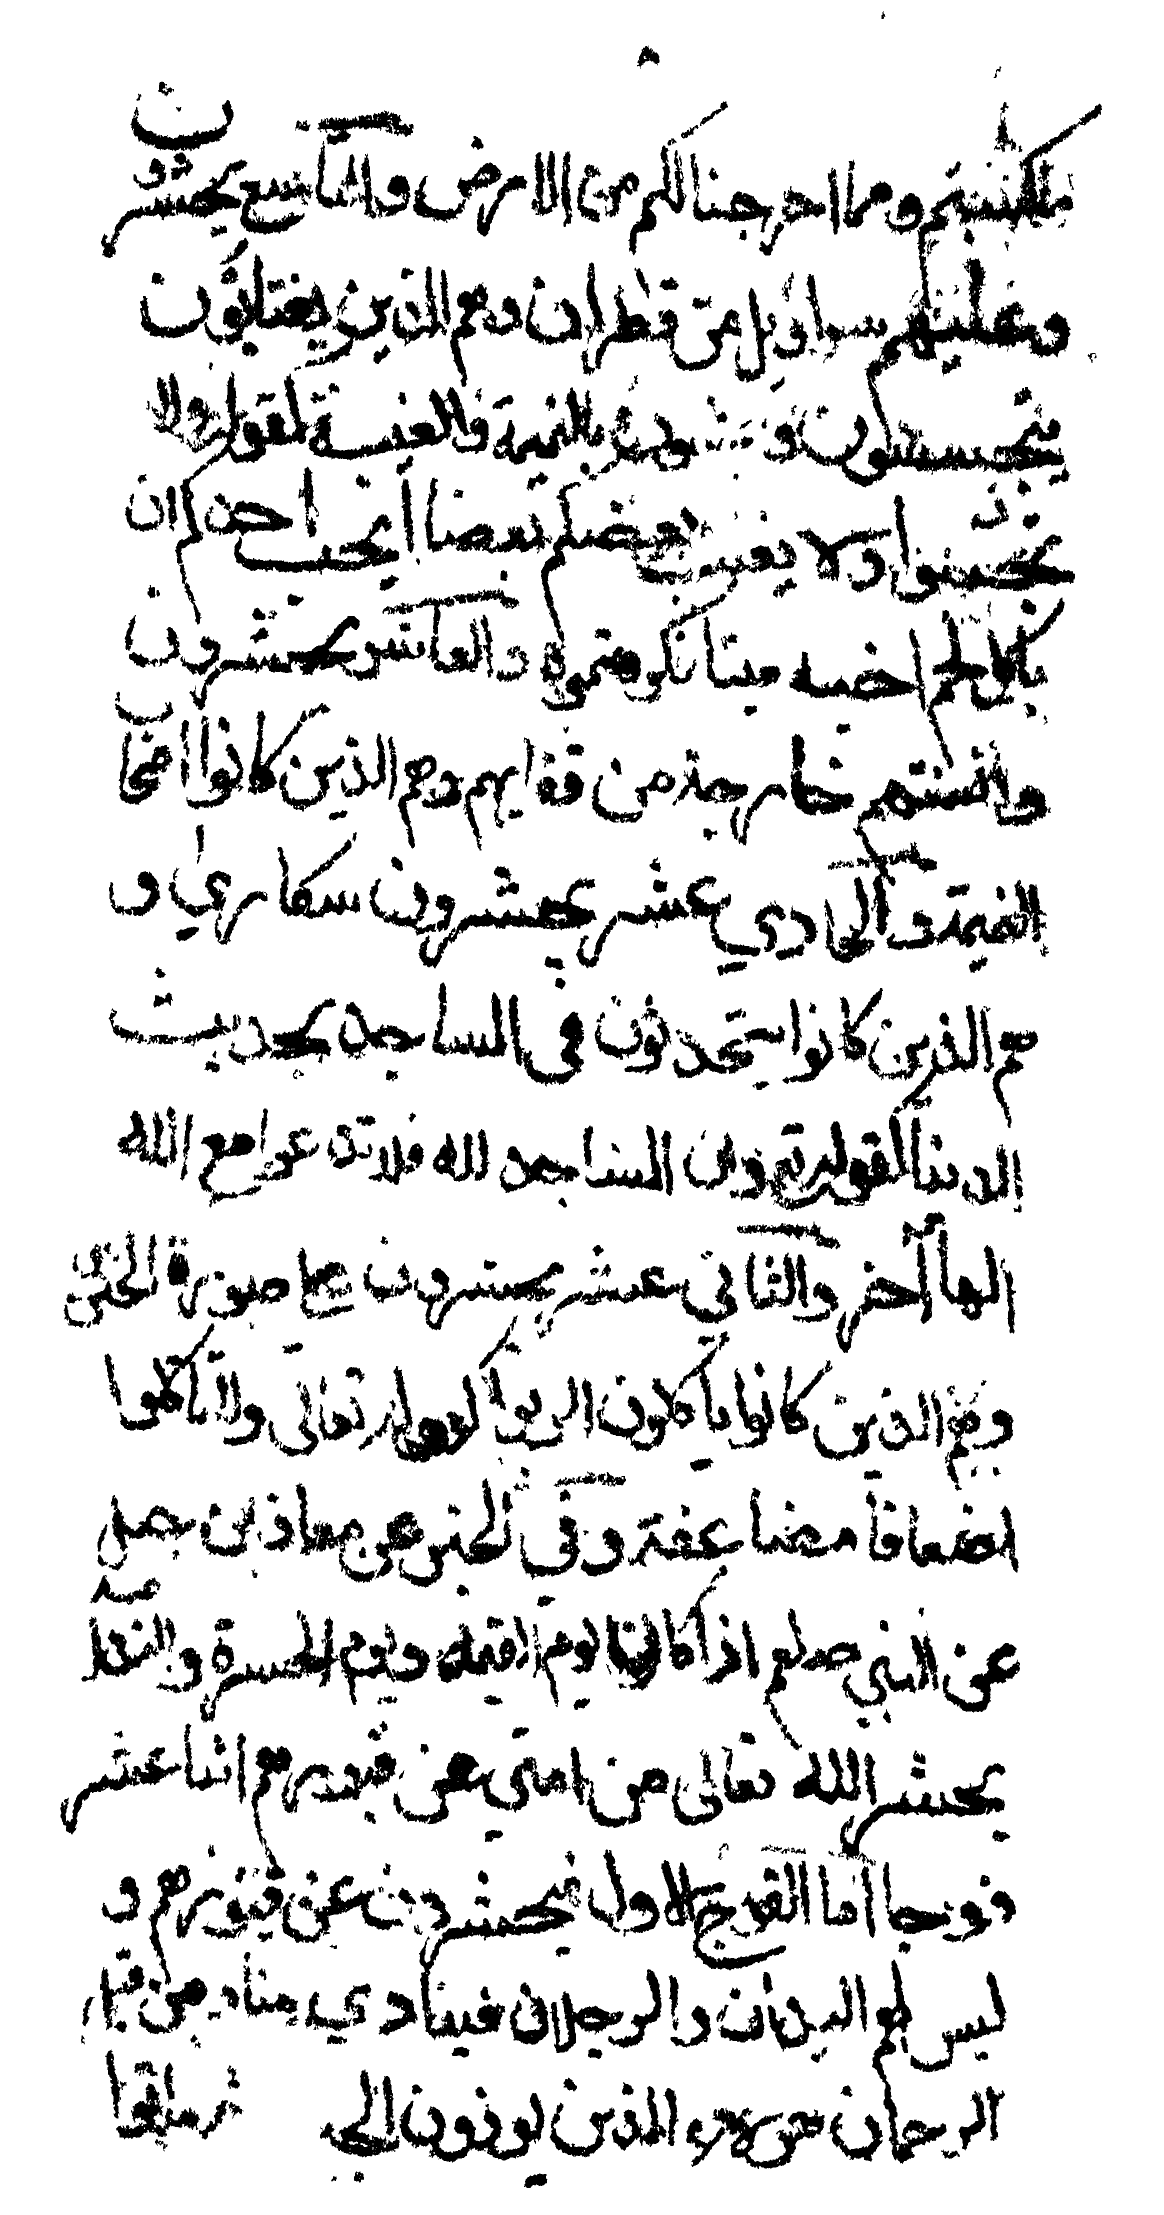 ما كسبتم ومما اخرجنا لكم من الارض والتاسع يحشرون
وعليهم سراويل من قطران وهم الذين يغتابون
يتجسسون و بالنميمة والغيبة لقوله ولا
تجسسوا ولا يغتب بعضكم بعضا ايحب احدكم ان
ياكل لحم اخيه ميتا فكرهتموه والعاشر يحشرون
والسنتهم خارجة من قفايهم وهم الذين كانوا اصحاب
النميمة والحادي عشر يحشرون سكاري و
هم الذين كانوا يتحدثون في المساجد بحديث
الدنيا لقوله تع وان المساجد لله فلا تدعوا مع الله
الها آخر والثاني عشر يحشرون علي صورة الخنزير
وهم الذين كانوا ياكلون الربوا لقوله تعالى ولا تاكلوا
اضعافا مضاعفة وفي الخبر عن معاذ بن جبل
عن النبي صلعم اذا كان يوم القيمة ويوم الحسرة والندامة
يحشر الله تعالى من امتي عن قبورهم اثنا عشر
فوجا اما الفوج الاول فيحشرون عن قبورهم و
ليس لهم اليدان والرجلان فينادي مناد من قبل
الرحمان هؤلاء الذين يوذون الجـ ثم ماتوا